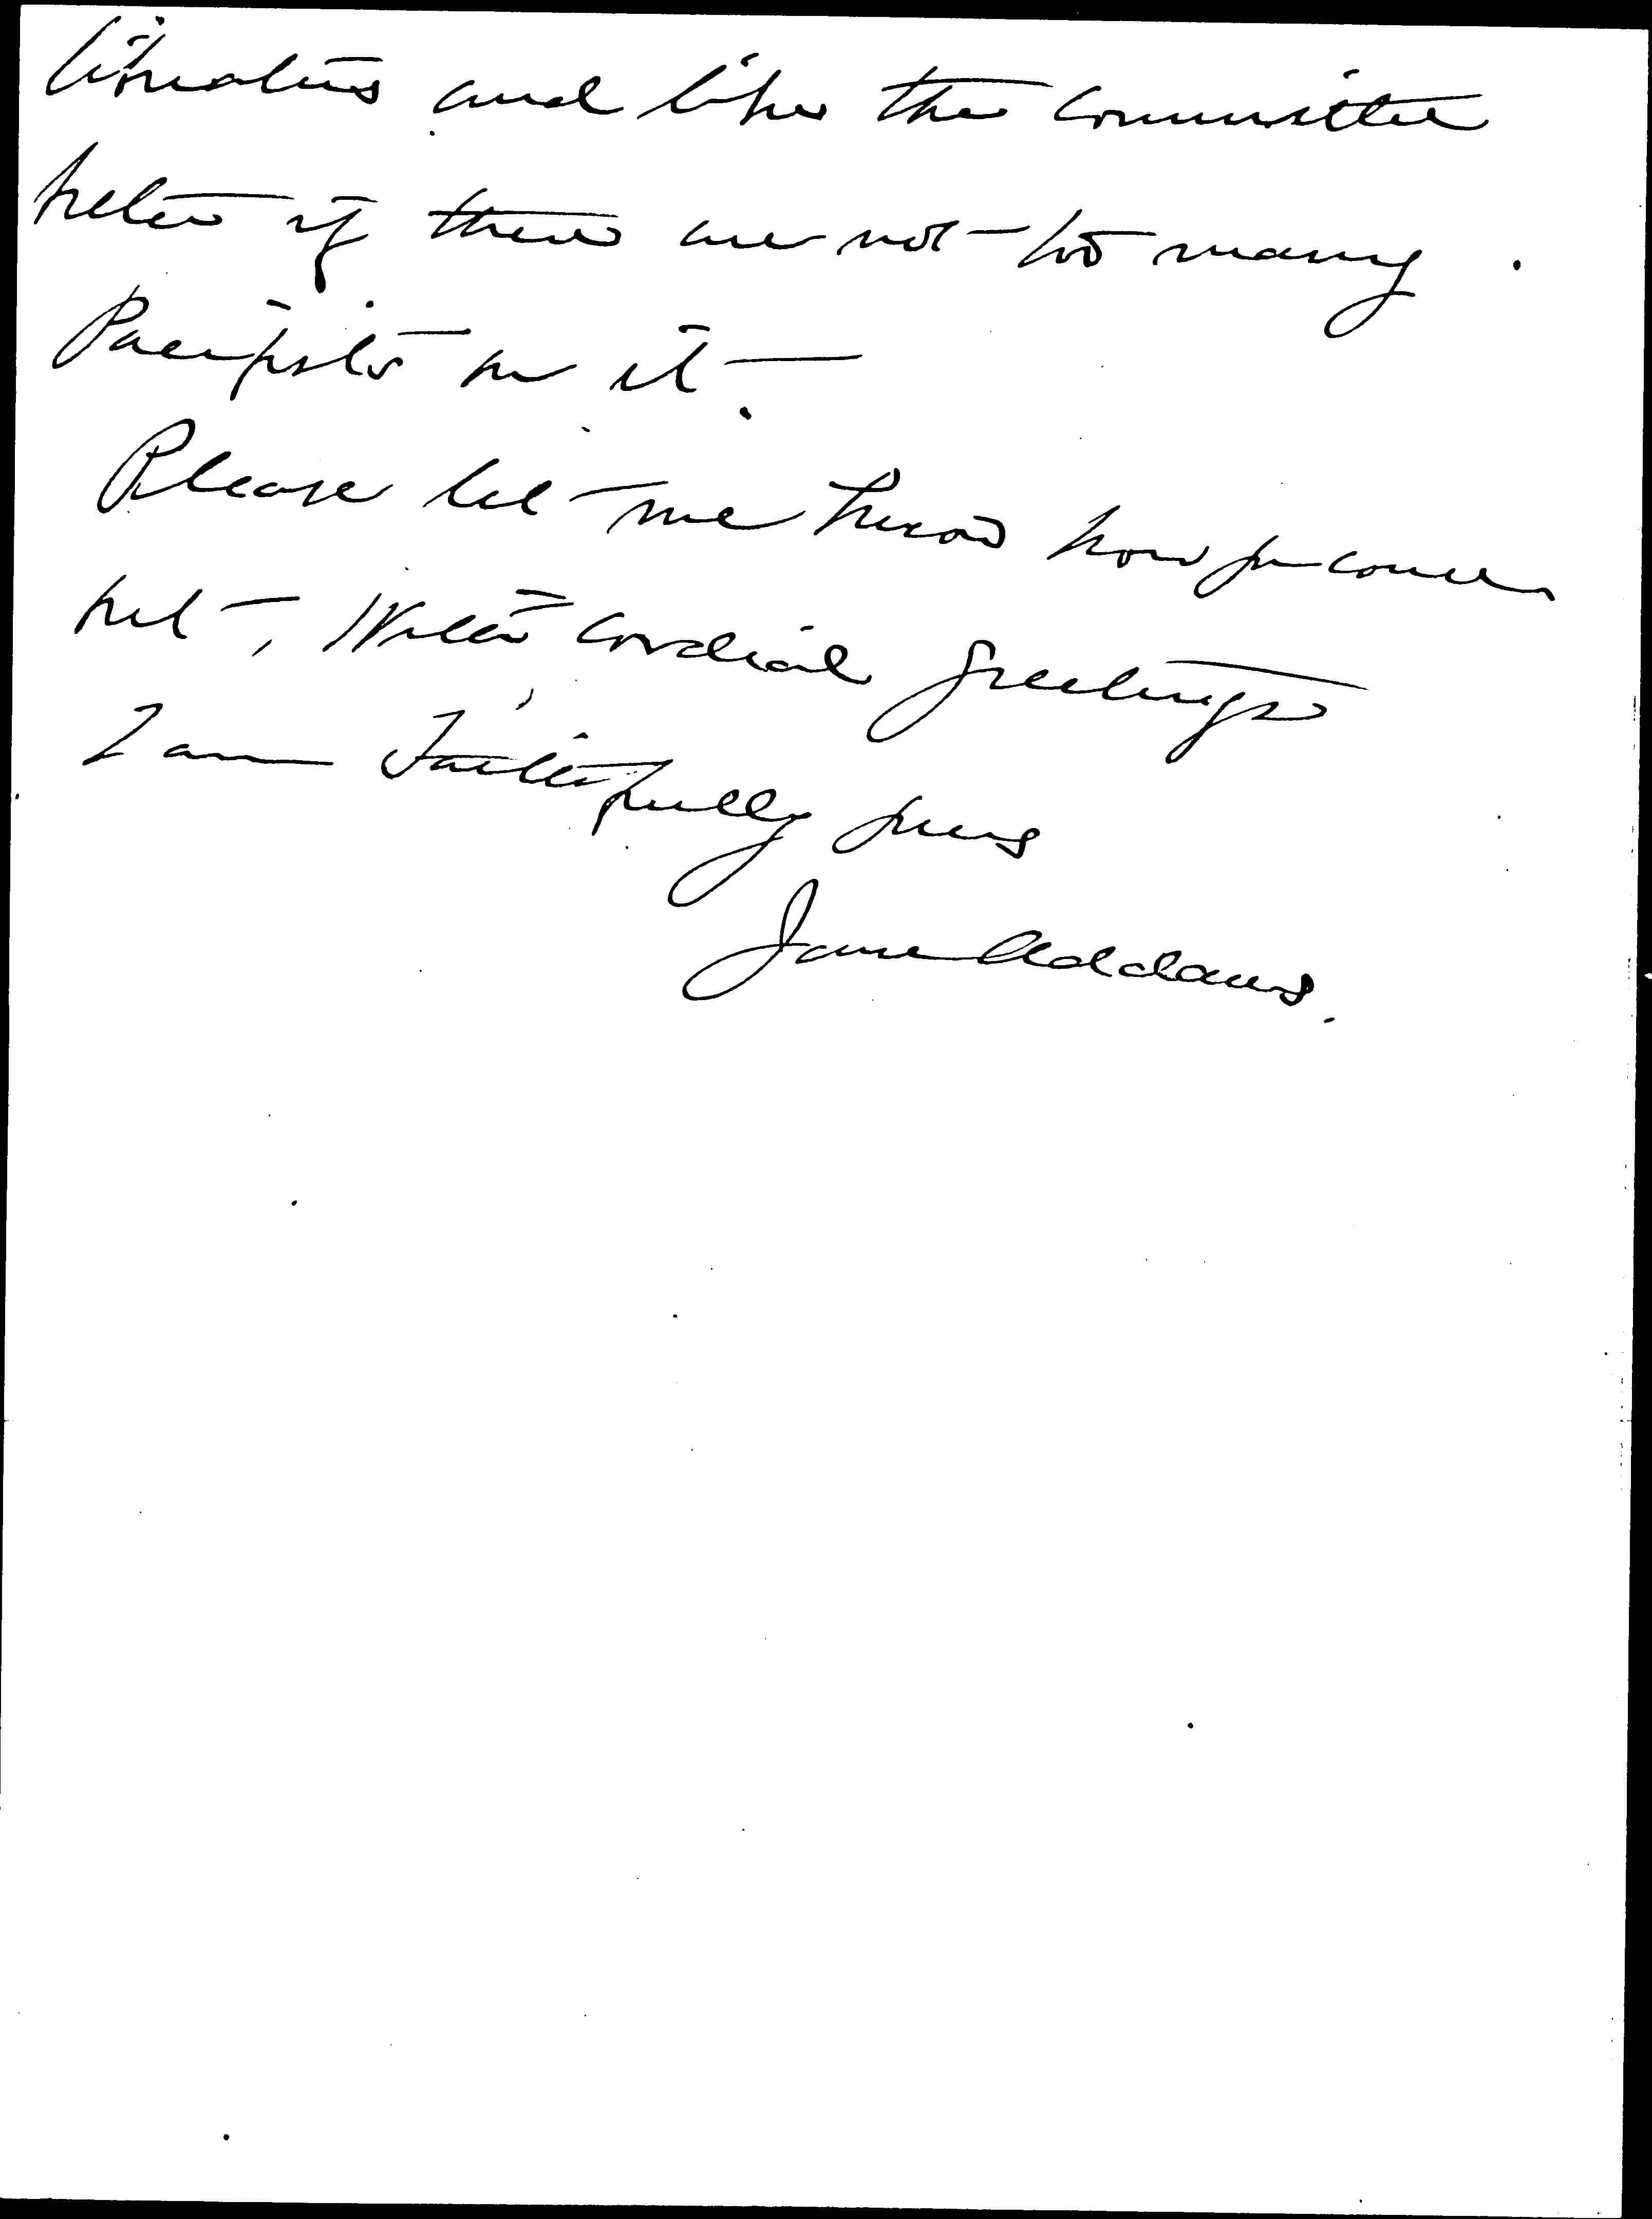 and like the committee
better if there are not too many
Pacifists on it.
Please let me know how you come
out. With cordial greetings
I am Faithfully yours
Jane Addams.